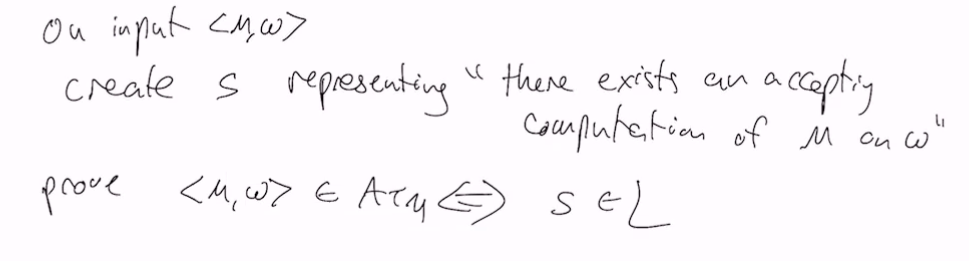 On input <M,w>
create S representing "there exists an acceptig
computation of M on w"
prove <M,w> ∈ ATM ⇔ S ∈ L